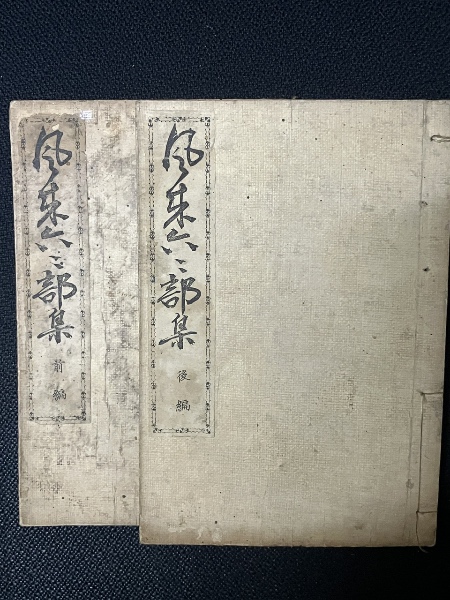 風来六々部集
後編
風来六々部集
前編